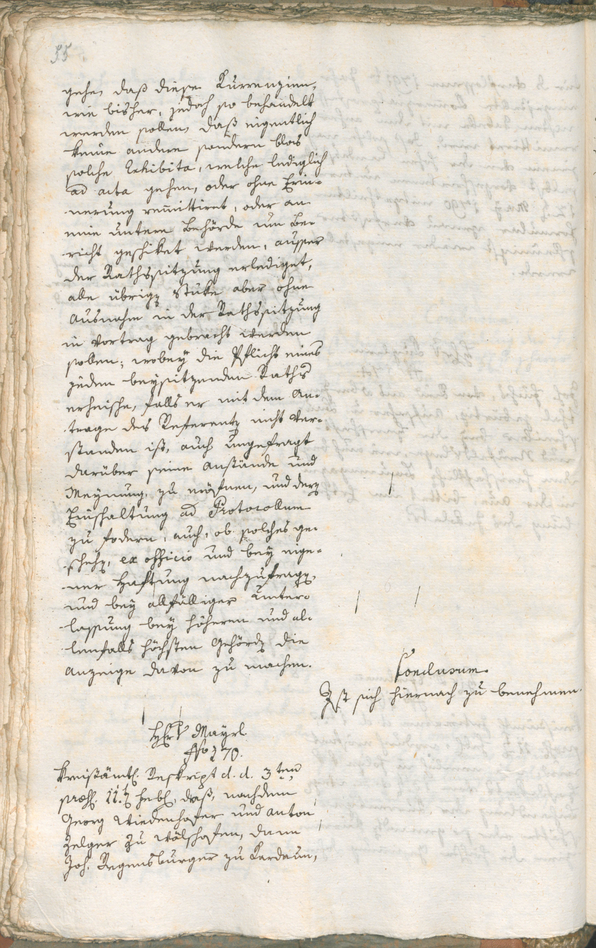 55
gehen, daß diese Kurrenzien,
wie bisher, jedoch so behandelt
werden sollen, daß eigentlich
keine andere sondern blos
solche Exhibita, welche lediglich
ad acta gehen, oder ohne Erin-
nerung remittiret, oder an
eine untere Behörde um Be-
richt geschiket werden, ausser
der Rathssitzung erlediget,
alle übrige Stüke aber ohne
Ausnahm in der Rathssitzung
in Vortrag gebracht werden
sollen; wobey die Pflicht eines
jeden beysitzenden Raths
erheische, falls er mit dem An-
trage des Referenten nicht ver-
standen ist, auch ungefragt
darüber seine Anstände und
Meynung zu eröfnen, und derer
Einschaltung ad Protocollum
zu fodern, auch, ob solches ge-
schehe, ex officio und bey eige-
ner Haftung nachzufragen,
und bey allfälliger Unter-
lassung bey höheren und al-
lenfalls höchsten Behörden die
Anzeige davon zu machen.
Conclusum.
Ist sich hiernach zu benehmen.
Mayrl
No 270.
Kreisämtl. Reskript d. d. 3ten
praes. 11t hebl. daß, nachdem
Georg Wiedenhofer und Anton
Zelger zu Wölshofen, dann
Joh. Regensburger zu Kardaun,